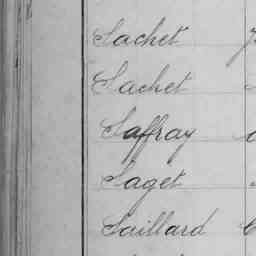 Sachet
Sachet
Saffray
Saget
Saillard